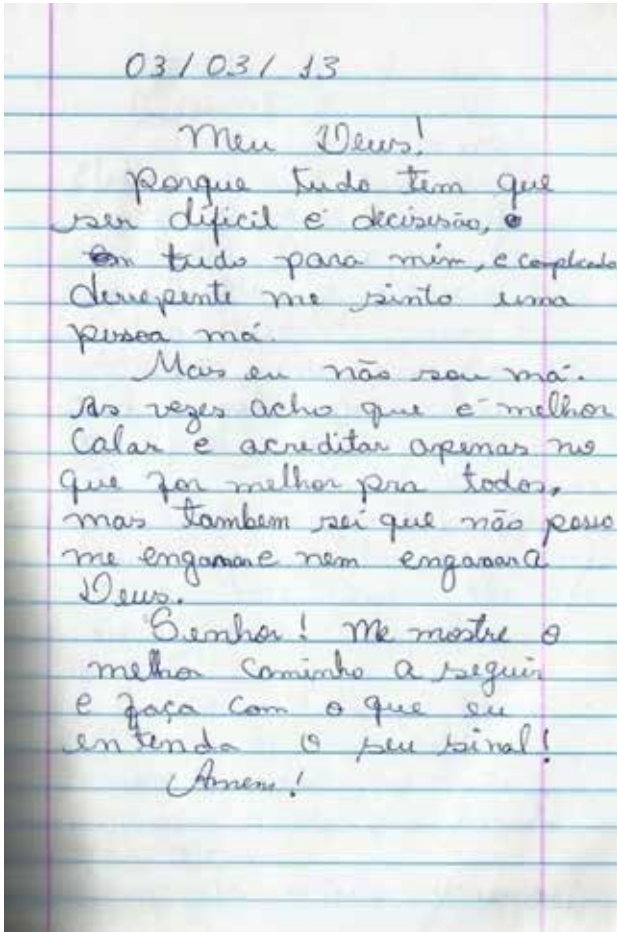 03/03/13
Meu Deus!
Porque tudo tem que
ser dificil e decisisão,
tudo para mim, e complicado
derrepente me sinto uma
pessoa má.
Mais eu não sou má.
As vezes acho que é melhor
Calar e acreditar apenas no
que for melhor pra todos,
mas tambem sei que não posso
me enganar e nem enganar a
Deus.
Senhor! Me mostre o
melhor caminho a seguir
e faça com o que eu
entenda o seu sinal!
Amem!